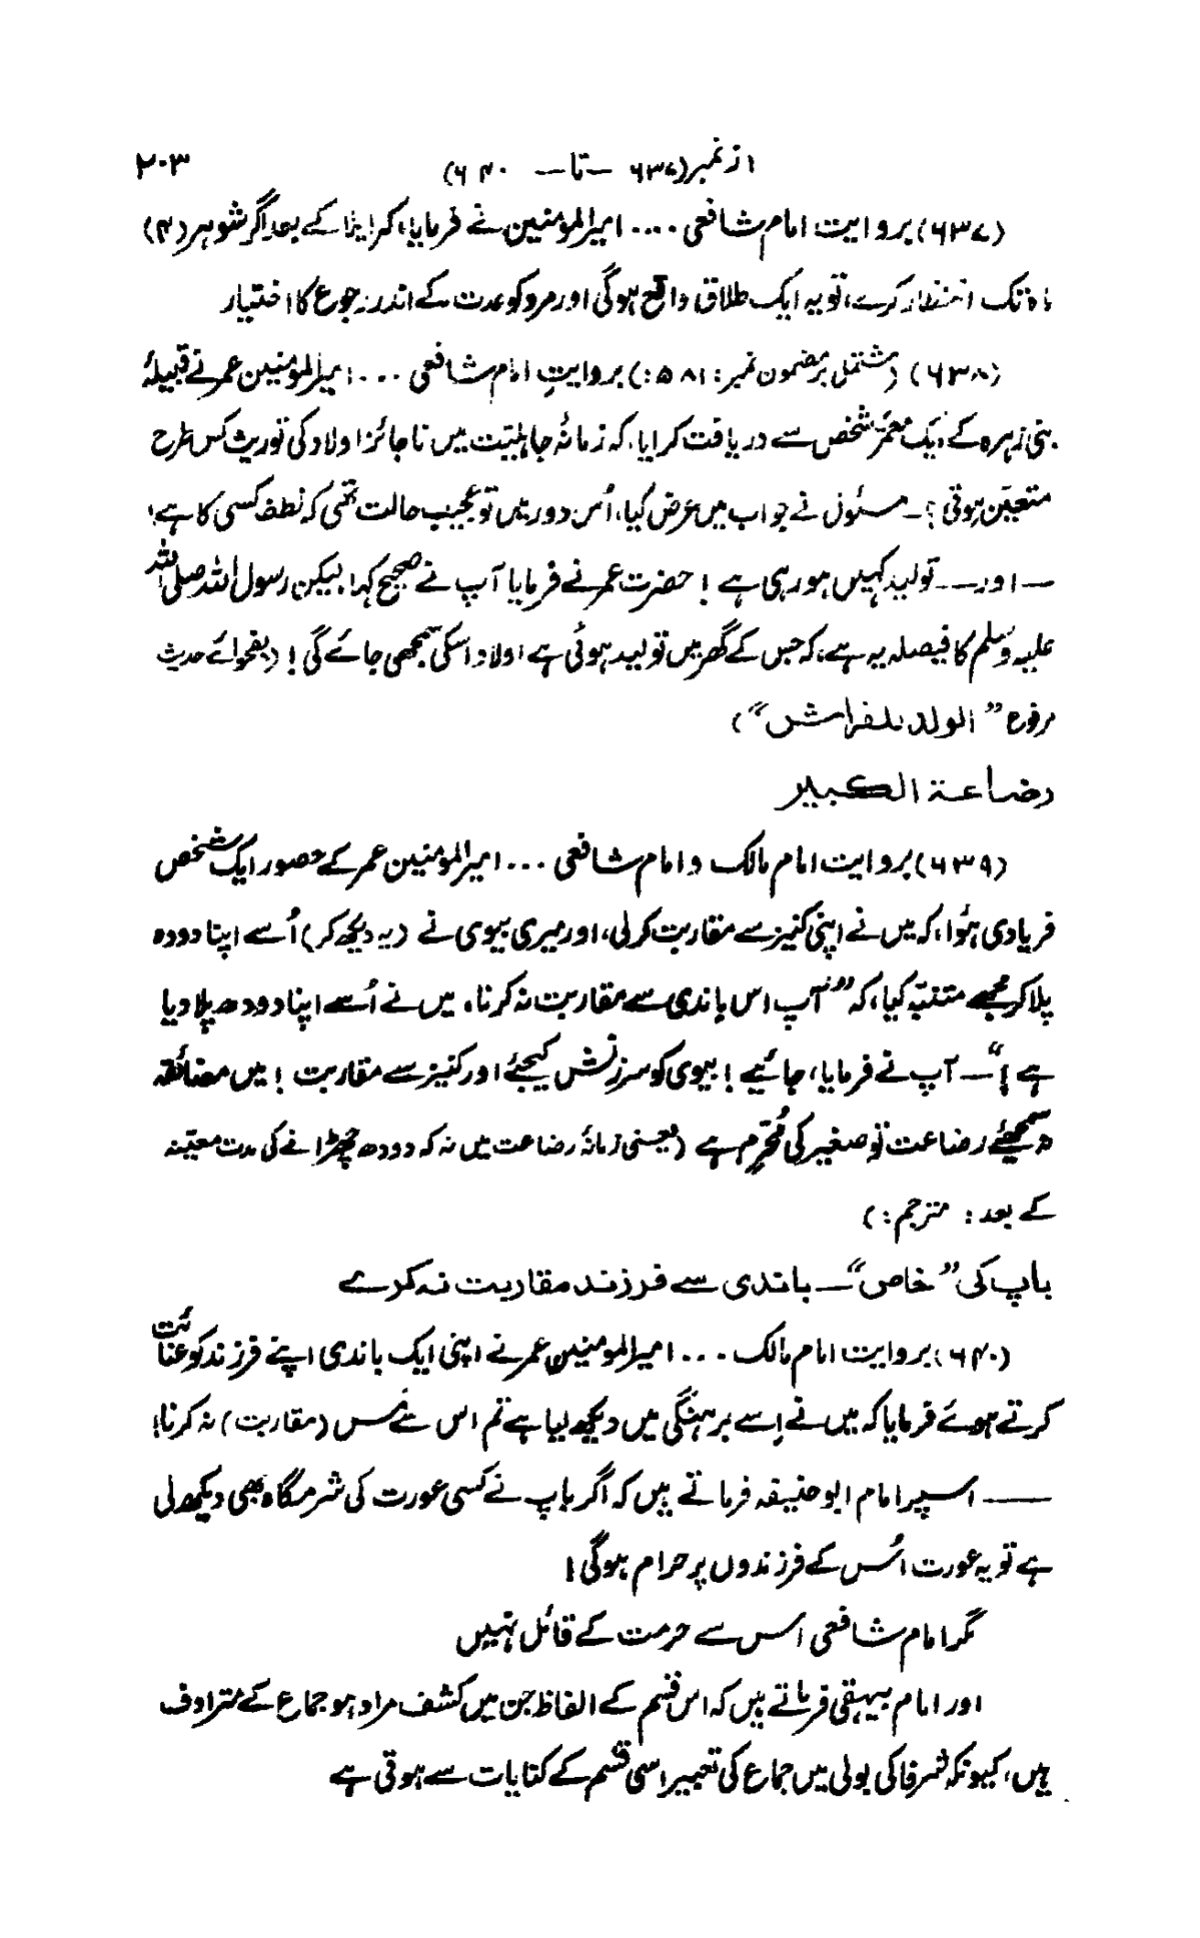 از نمبر (۶۳۷ — تا — ۶۴۰) ۲۰۳
(۶۳۷) بروایت امام شافعی .... امیرالمؤمنین نے فرمایا، کہ ایلا کے بعد اگر شوہر (۴)
ماہ تک انتظار کرے، تو یہ ایک طلاق واقع ہوگی اور مرد کو عدت کے اندر رجوع کا اختیار
(۶۳۸) (مشتمل بر مضمون نمبر: ۵۸۱:) بروایتِ امام شافعی ... امیرالمؤمنین عمر نے قبیلۂ
بنی زہرہ کے ایک معمّر شخص سے دریافت کرایا، کہ زمانۂ جاہلیّت میں ناجائز اولاد کی توریث کس طرح
متعیّن ہوتی؟ — مسئول نے جواب میں عرض کیا، اُس دور میں تو عجیب حالت تھی کہ نطفہ کسی کا ہے!
— اور — تولید کہیں ہو رہی ہے! حضرت عمر نے فرمایا آپ نے صحیح کہا! لیکن رسول اللہ صلی اللہ
علیہ وسلم کا فیصلہ یہ ہے، کہ جس کے گھر میں تولید ہوئی ہے اولاد اسکی سمجھی جائے گی! (بفحوائے حدیث
مرفوع ”الولد للفراش“)
رضاعة الكبير
(۶۳۹) بروایت امام مالک و امام شافعی ... امیرالمؤمنین عمر کے حضور ایک شخص
فریادی ہُوا، کہ میں نے اپنی کنیز سے مقاربت کرلی، اور میری بیوی نے (یہ دیکھ کر) اُسے اپنا دودہ
پلا کر مجھے متنبّہ کیا، کہ ”آپ اس باندی سے مقاربت نہ کرنا، میں نے اُسے اپنا دودھ پلا دیا
ہے!“ — آپ نے فرمایا، جائیے! بیوی کو سرزنش کیجئے اور کنیز سے مقاربت! میں مضائقہ
نہ سمجھئے رضاعت تو صغیر کی مُحرّم ہے (یعنی زمانۂ رضاعت میں نہ کہ دودھ چھڑانے کی مدت معیّنہ
کے بعد: مترجم:)
باپ کی ”خاص“ — باندی سے فرزند مقاربت نہ کرے
(۶۴۰) بروایت امام مالک ... امیرالمومنین عمر نے اپنی ایک باندی اپنے فرزند کو عنائت
کرتے ہوئے فرمایا کہ میں نے اِسے برہنگی میں دیکھ لیا ہے تم اس سے مس (مقاربت) نہ کرنا!
— اسپر امام ابو حنیفہ فرماتے ہیں کہ اگر باپ نے کسی عورت کی شرمگاہ بھی دیکھ لی
ہے تو یہ عورت اُس کے فرزندوں پر حرام ہوگی!
مگر امام شافعی اس سے حرمت کے قائل نہیں
اور امام بیہقی فرماتے ہیں کہ اس قسم کے الفاظ جن میں کشف مراد ہو جماع کے مترادف
ہیں، کیونکہ شرفا کی بولی میں جماع کی تعبیر اسی قسم کے کنایات سے ہوتی ہے